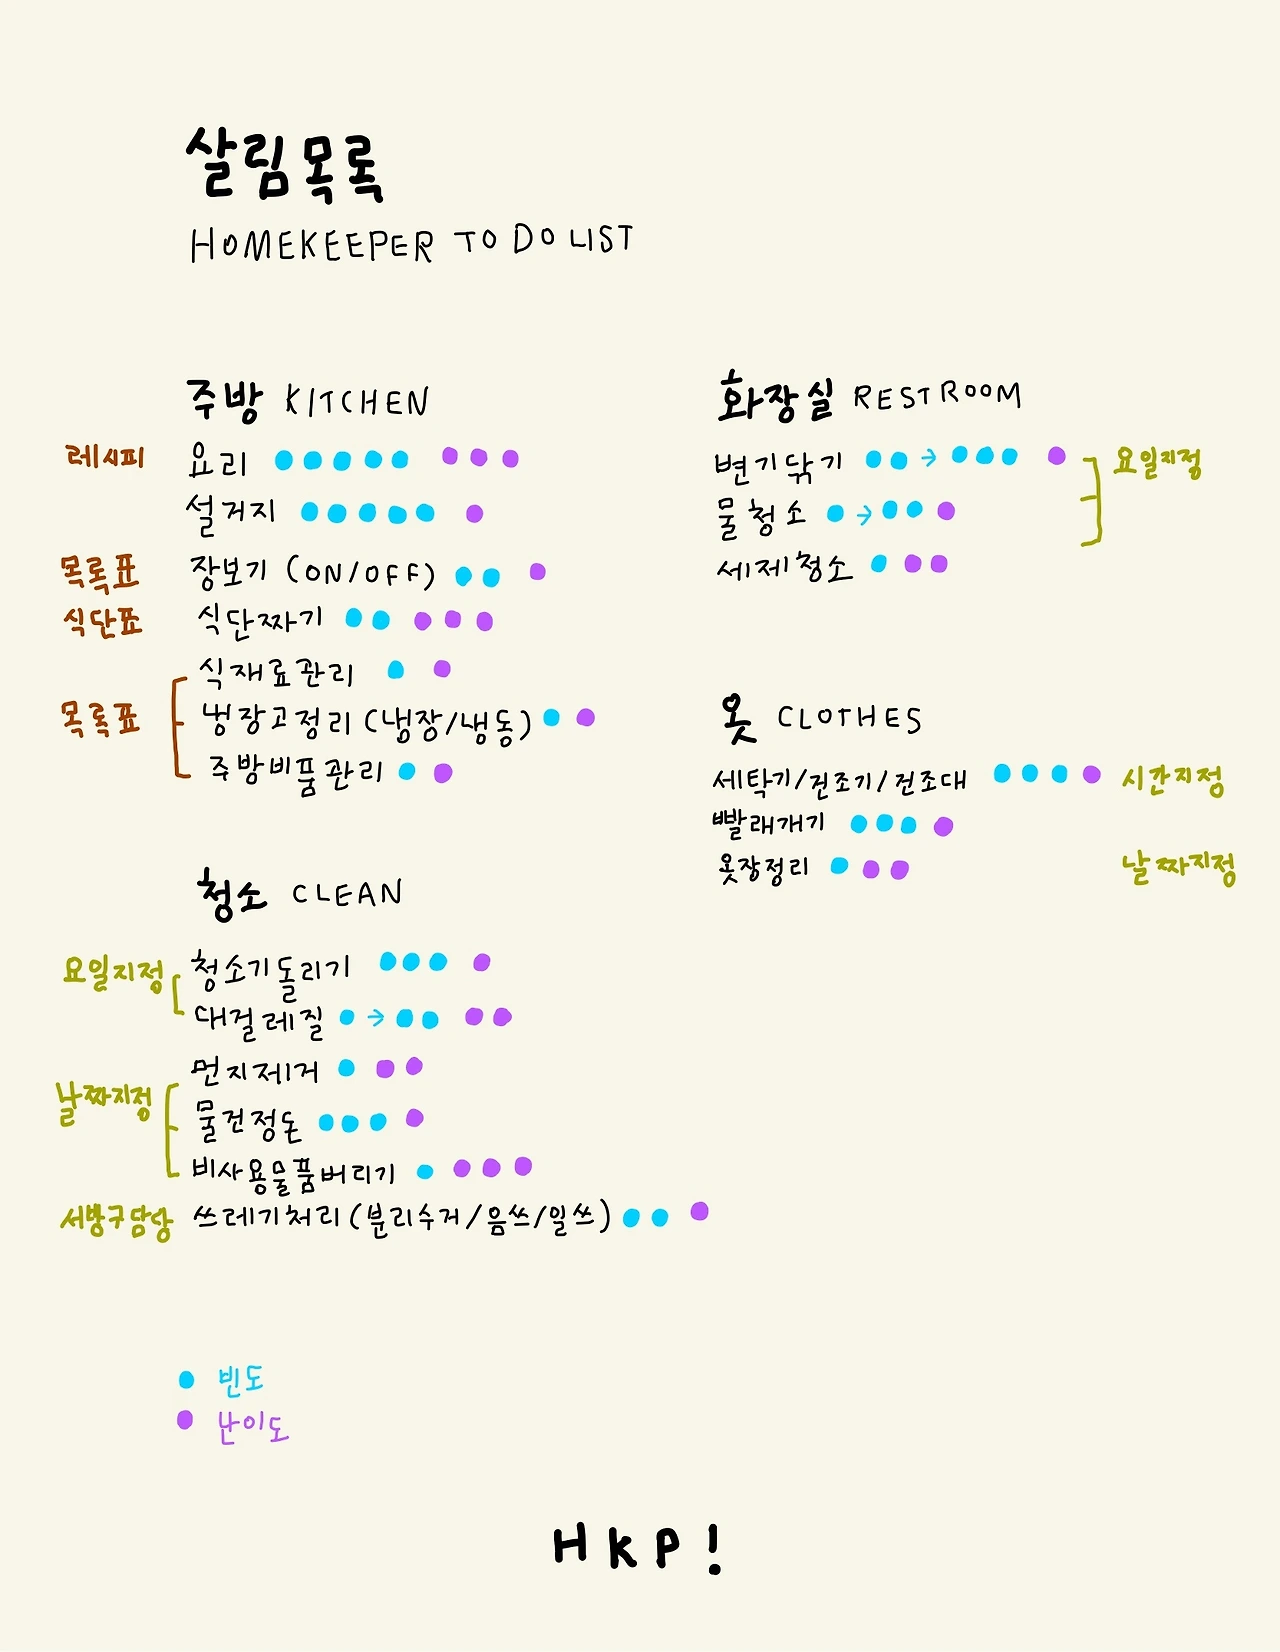 살림목록
HOMEKEEPER TO DO LIST
주방 KITCHEN
레시피 요리
설거지
목록표 장보기 (ON/OFF)
식단표 식단짜기
식재료관리
목록표 냉장고정리 (냉장/냉동)
주방비품관리
청소 CLEAN
요일지정 청소기돌리기
대걸레질 →
먼지제거
날짜지정 물건정돈
비사용물품버리기
서방구담당 쓰레기처리 (분리수거/음쓰/일쓰)
화장실 RESTROOM
변기닦기 → 요일지정
물청소 →
세제청소
옷 CLOTHES
세탁기/건조기/건조대 시간지정
빨래개기
옷장정리 날짜지정
빈도
난이도
HKP!